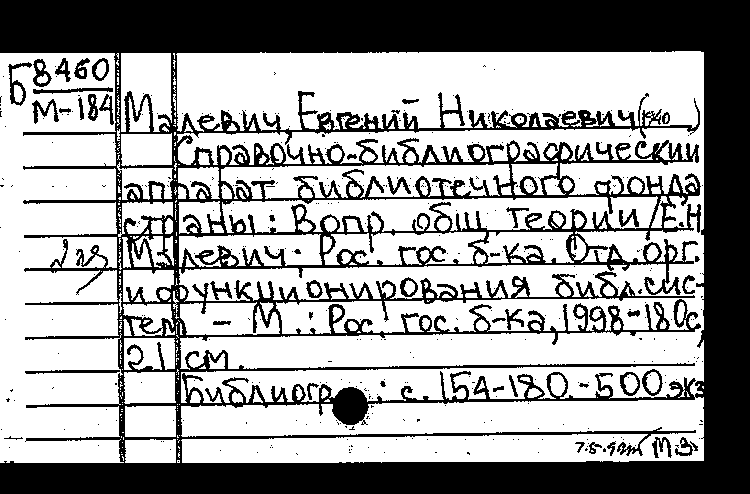 Б 8460
М-184
Малевич, Евгений Николаевич (1940 )
Справочно-библиографический
аппарат библиотечного фонда
страны: Вопр. общ. теории / Е.Н.
Малевич; Рос. гос. б-ка. Отд. орг.
и функционирования библ. сис-
тем. - М.: Рос. гос. б-ка, 1998-180с;
21 см.
Библиогр.: с. 154-180. - 500 экз
М.З.